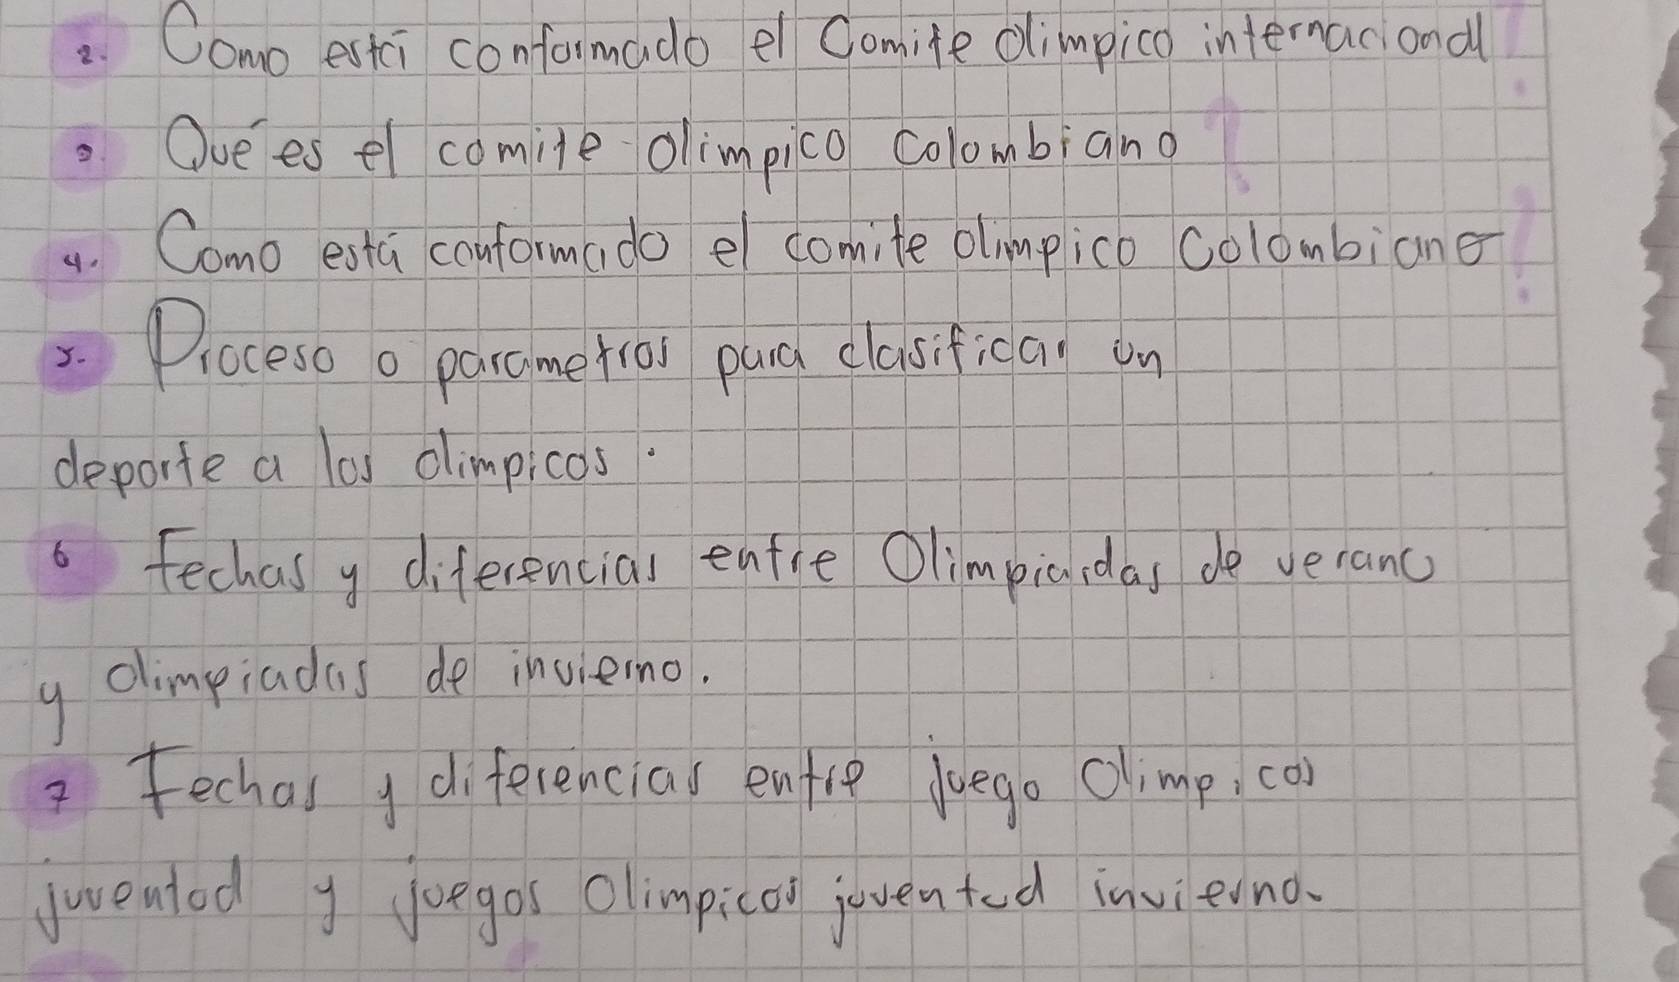 2. Como está conformado el Comite Olimpico internacional?
3. Qué es el comite olimpico Colombiano?
4. Como está conformado el comite Olimpico Colombiano?
5. Proceso o parametros para clasificar un
deporte a los olimpicos.
6 Fechas y diferencias entre Olimpiadas de verano
y Olimpiadas de invierno.
7 Fechas y diferencias entre Juego Olimpicos
juventud y juegos Olimpicos juventud invierno.